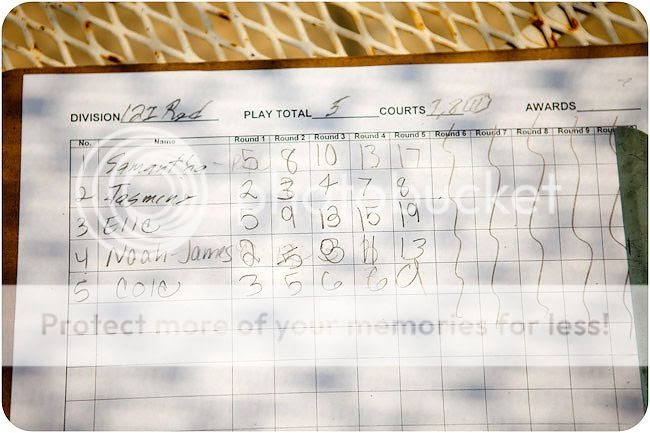 DIVISION 12I Red PLAY TOTAL 5 COURTS AWARDS
No. Name Round 1 Round 2 Round 3 Round 4 Round 5 Round 6 Round 7 Round 8 Round 9
1 Samantha 5 8 10 13 17
2 Jasmine 2 3 4 7 8
3 Elie 5 9 13 15 19
4 Noah-James 2 5 8 11 13
5 Cole 3 5 6 6 9
photobucket
Protect more of your memories for less!